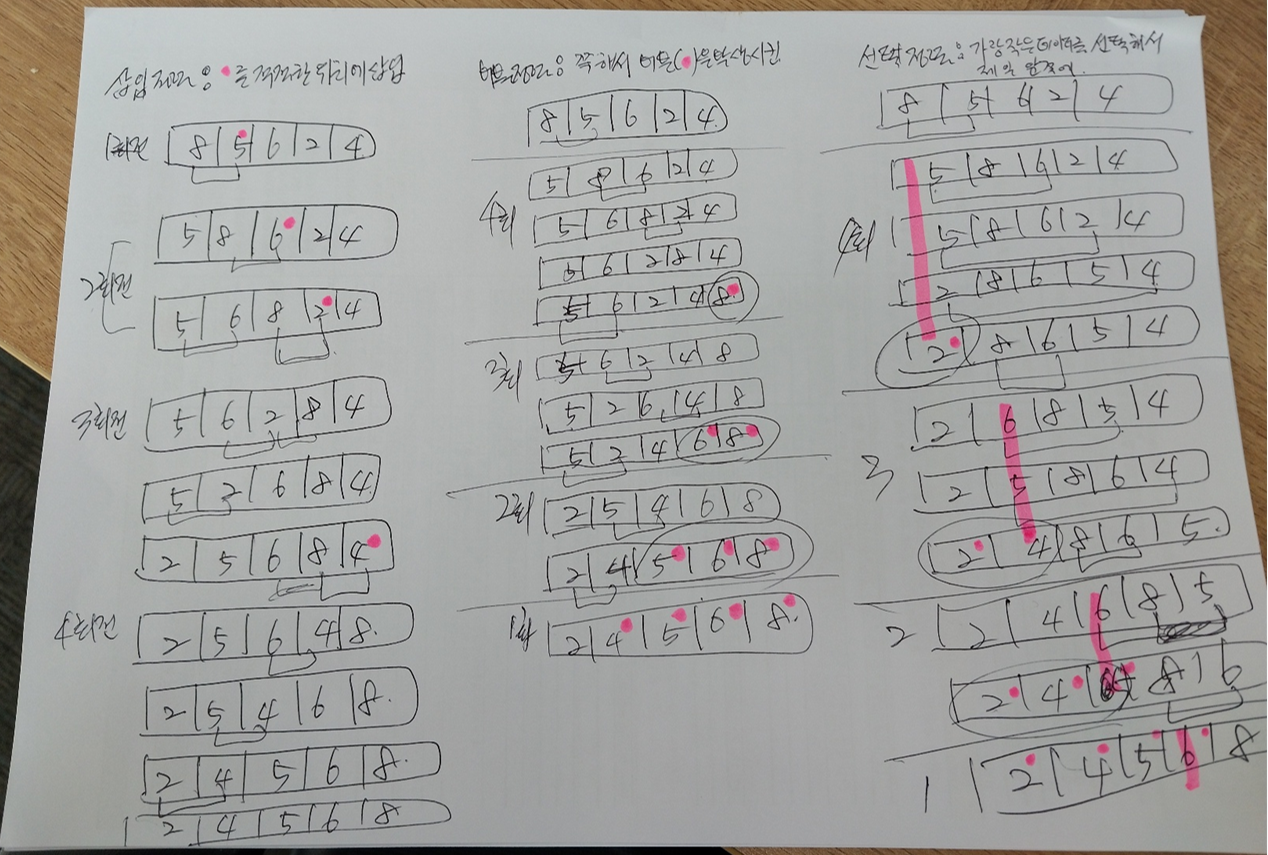 삽입정렬은 를 적절한 위치에 삽입
1회전 8 | 5 | 6 | 2 | 4
5 | 8 | 6 | 2 | 4
2회전
5 | 6 | 8 | 2 | 4
3회전 5 | 6 | 2 | 8 | 4
5 | 2 | 6 | 8 | 4
2 | 5 | 6 | 8 | 4
4회전 2 | 5 | 6 | 4 | 8
2 | 5 | 4 | 6 | 8
2 | 4 | 5 | 6 | 8
2 | 4 | 5 | 6 | 8
8 | 5 | 6 | 2 | 4
5 | 8 | 6 | 2 | 4
4회 5 | 6 | 8 | 2 | 4
6 | 2 | 8 | 4
5 | 6 | 2 | 4 | 8
3회 5 | 6 | 2 | 4 | 8
5 | 2 | 6 | 4 | 8
5 | 2 | 4 | 6 | 8
2회 2 | 5 | 4 | 6 | 8
2 | 4 | 5 | 6 | 8
1회 2 | 4 | 5 | 6 | 8
선택정렬은 가장작은 데이터를 선택해서
제일 앞쪽에
8 | 5 | 6 | 2 | 4
5 | 8 | 6 | 2 | 4
4회 5 | 8 | 6 | 2 | 4
2 | 8 | 6 | 5 | 4
2 | 8 | 6 | 5 | 4
2 | 6 | 8 | 5 | 4
3
2 | 5 | 8 | 6 | 4
2 | 4 | 8 | 6 | 5
2 2 | 4 | 6 | 8 | 5
2 | 4 | 5 | 8 | 6
1 2 | 4 | 5 | 6 | 8